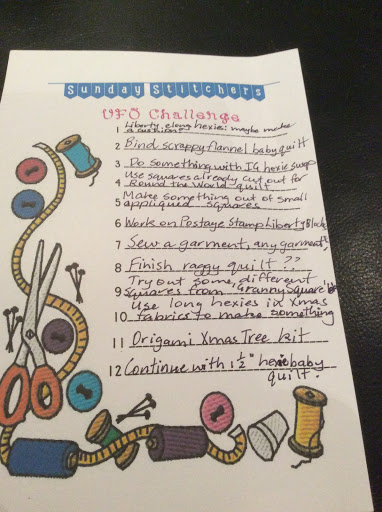 Sunday Stitchers
UFO Challenge
1 Liberty elong hexie: maybe make
a cushion?
2 Bind scrappy flannel baby quilt
3 Do something with IG hexie swap
Use squares already cut out for
4 Round the World quilt
Make something out of small
5 appliquéd squares
6 Work on Postage Stamp Liberty Block
7 Sew a garment, any garment!
8 Finish raggy quilt??
Try out some different
9 squares from Granny Square
Use long hexies in Xmas
10 fabrics to make something
11 Origami Xmas Tree kit
12 Continue with 1 1/2" hexie baby
quilt.